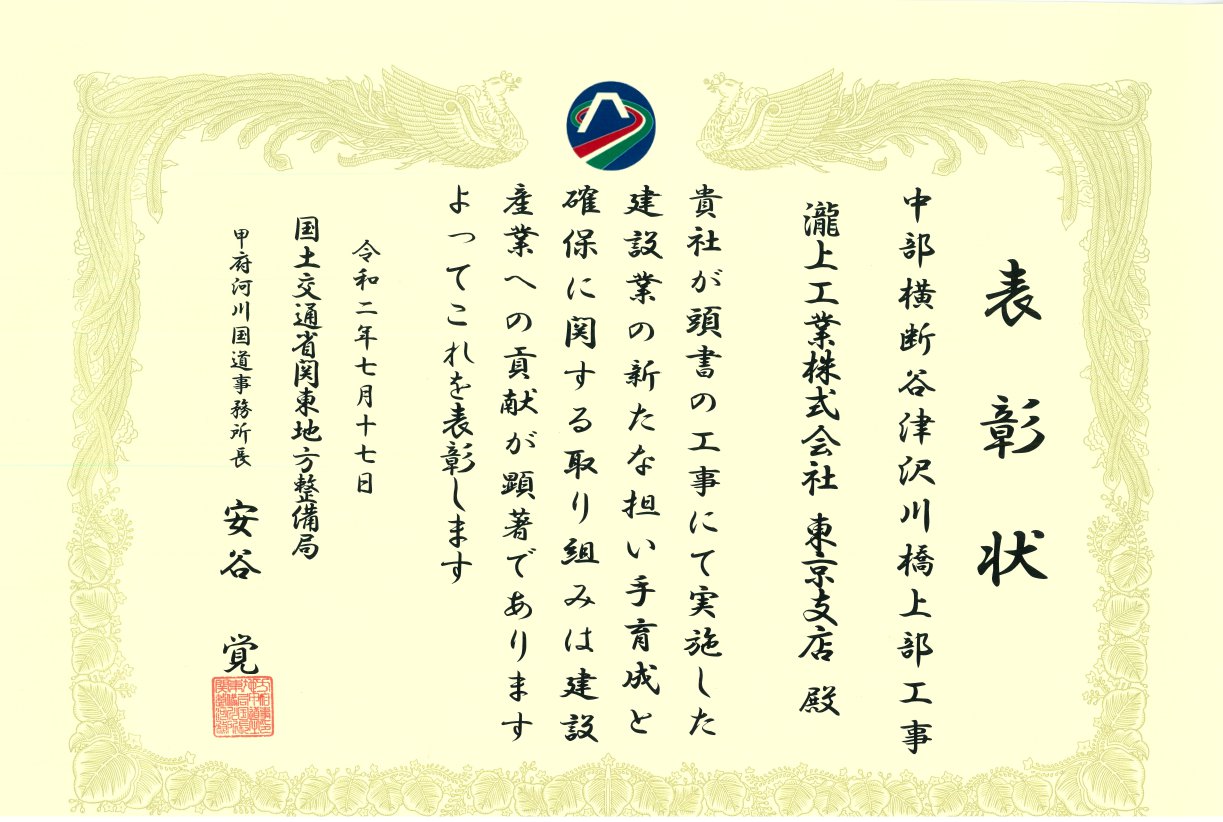 表彰状
中部横断谷津沢川橋上部工事
瀧上工業株式会社 東京支店 殿
貴社が頭書の工事にて実施した
建設業の新たな担い手育成と
確保に関する取り組みは建設
産業への貢献が顕著であります
よってこれを表彰します
令和二年七月十七日
国土交通省関東地方整備局
甲府河川国道事務所長 安谷 覚